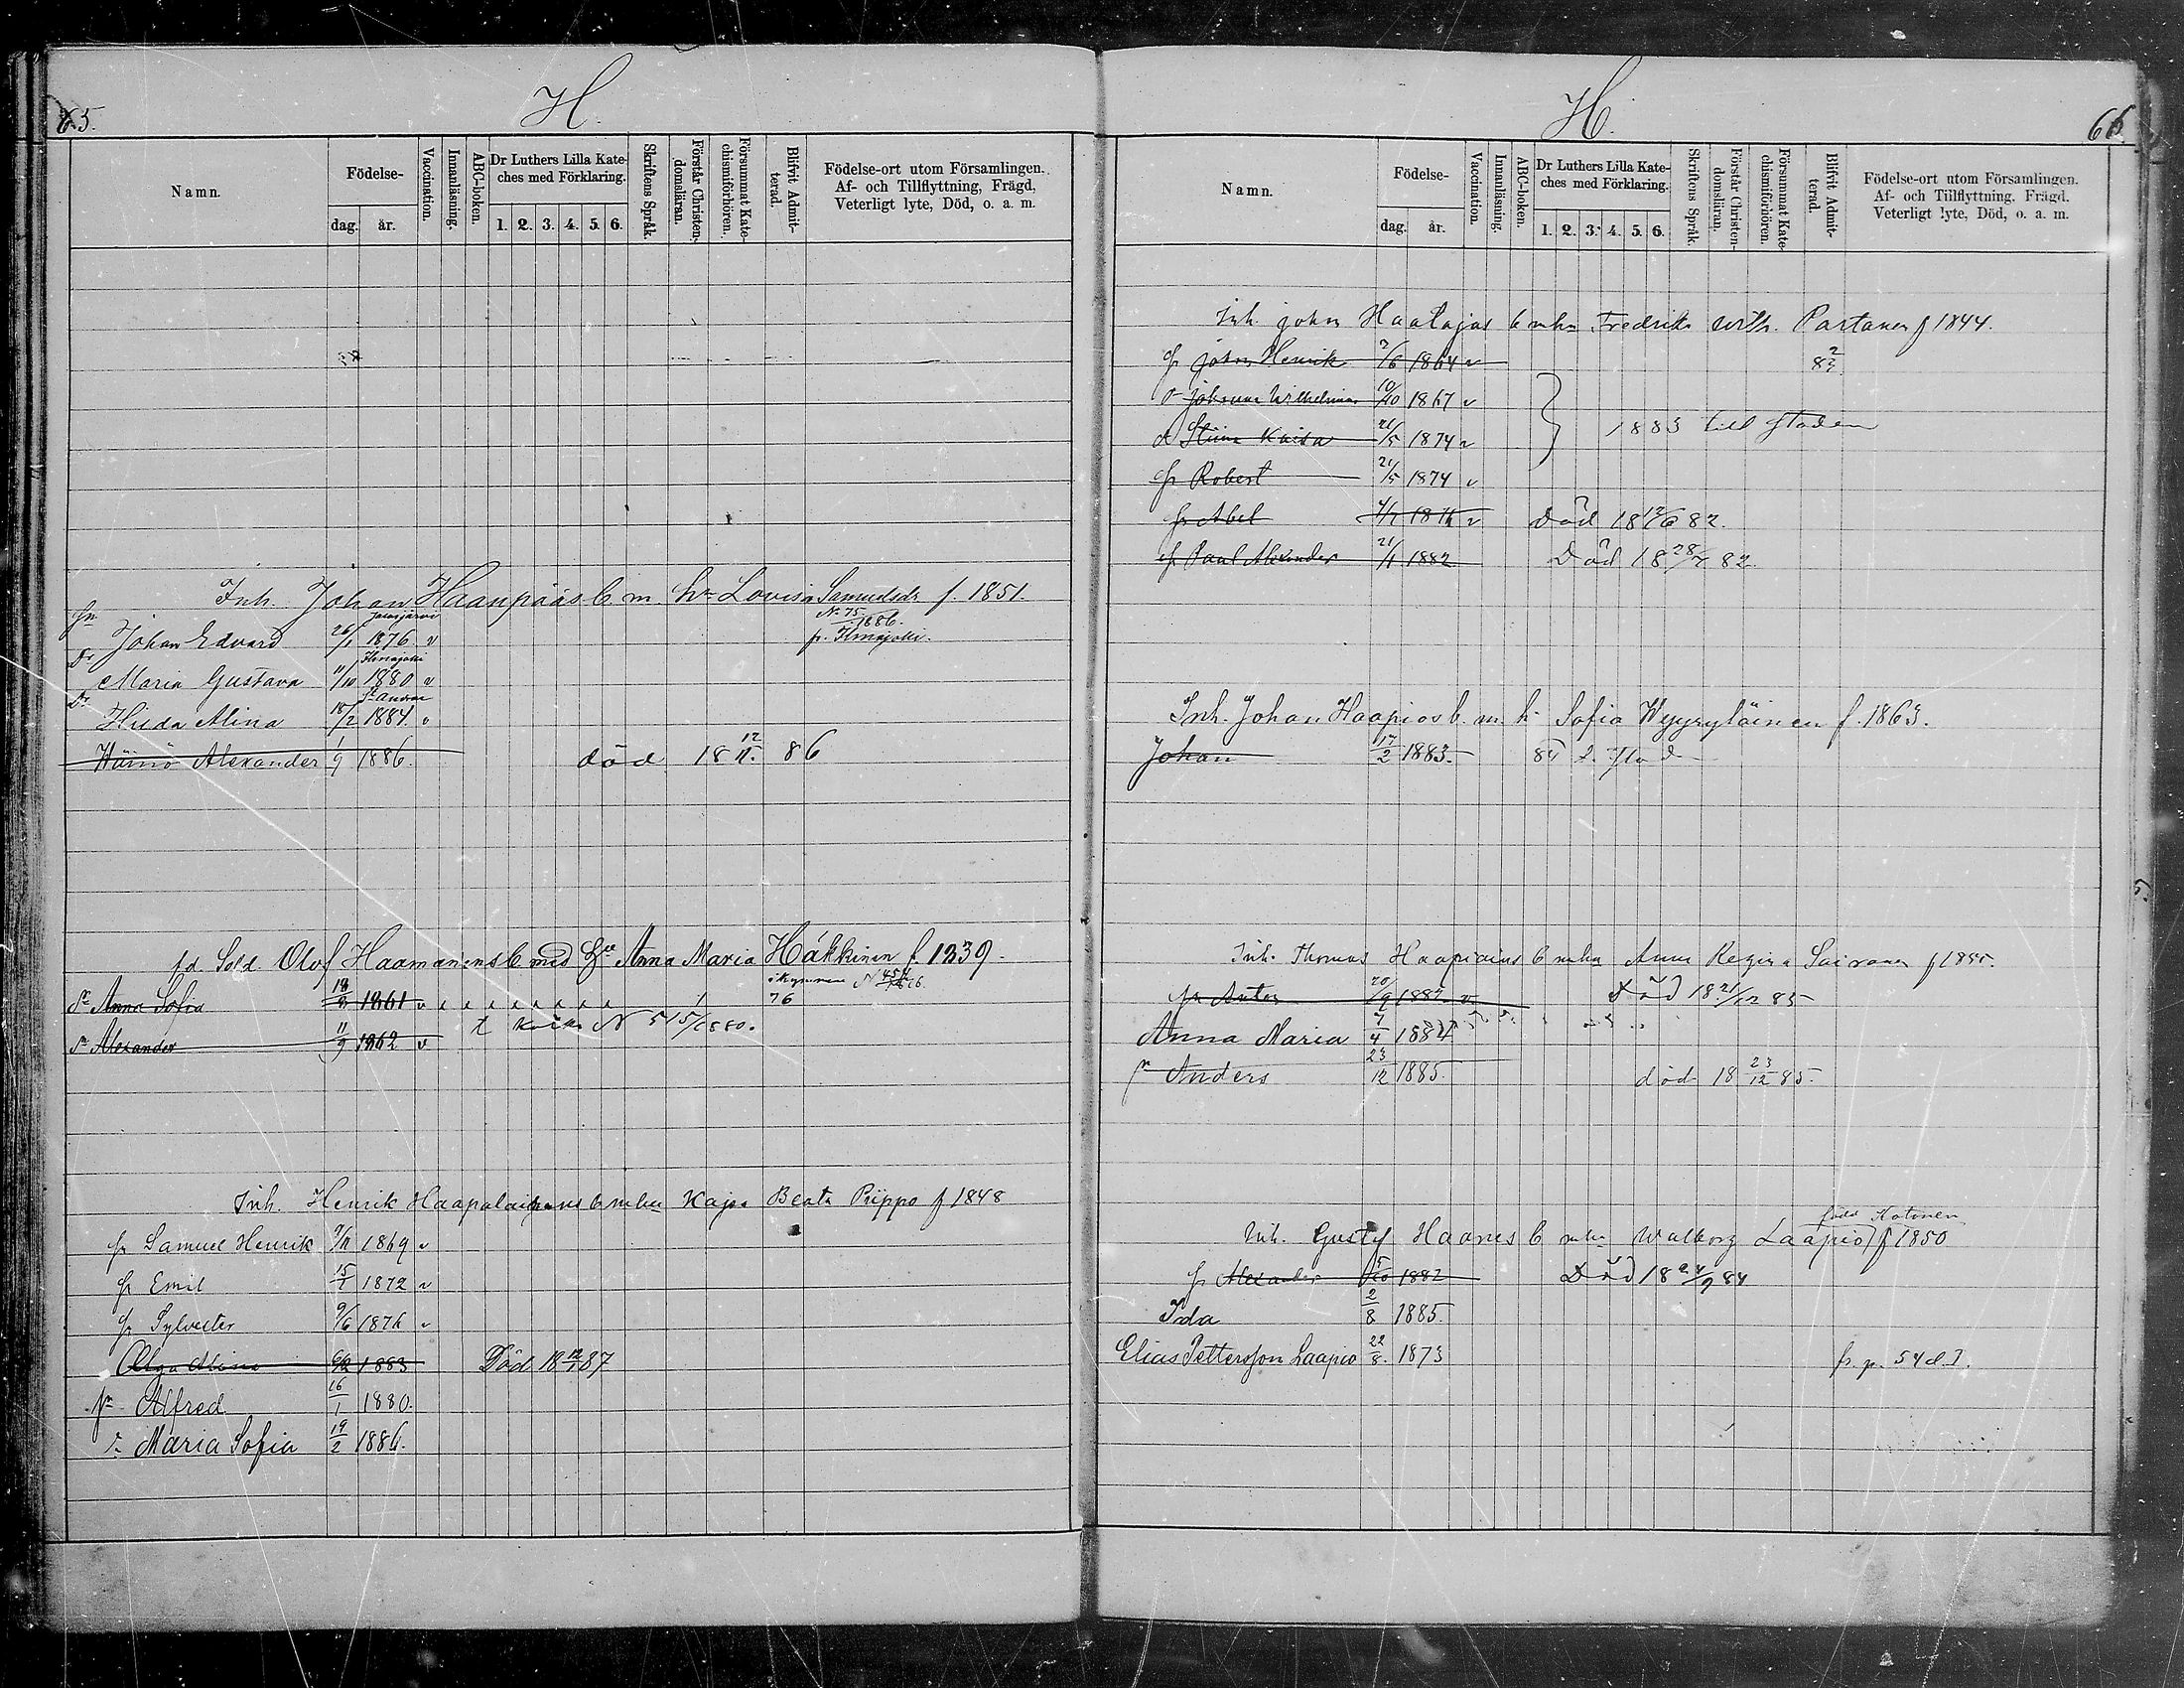 65.
H.
Namn.
Födelse-
dag. år.
Vaccination.
Innanläsning.
ABC-boken.
Dr Luthers Lilla Kate-
ches med Förklaring.
1. 2. 3. 4. 5. 6.
Skriftens Språk.
Förstår Christen-
domsläran.
Försummat Kate-
chismiförhören.
Blifvit Admit-
terad.
Födelse-ort utom Församlingen.
Af- och Tillflyttning, Frägd,
Veterligt lyte, Död, o. a. m.
Inh. Johan Haanpääs b. m. hn Lovisa Samuelsdr f. 1851.
Johan Edvard 26/1 1876 v
N. 75 1886.
fr. Ilmajoki.
Ilmajoki
Maria Gustava 11/10 1880 v
St Andree
Hilda Alina 18/2 1884. v
Wäinö Alexander 1/9 1886. död 18 12/11. 86
fd. Sold. Olof Haamanens b med Anna Maria Häkkinen f. 1839.
Anna Sofia 18/8 1861 v 76
Alexander 11/9 1862 v
Inh. Henrik Haapalainens b mhu Kajsa Beata Piippo f 1848
Samuel Henrik 9/11 1869 v
Emil 15/7 1872 v
Sylvester 9/6 1876 v
Olga Alina 1883 Död 18 12/1 87
Alfred 16/1 1880.
Maria Sofia 19/2 1886.
H.
66.
Namn.
Födelse-
dag. år.
Vaccination.
Innanläsning.
ABC-boken.
Dr Luthers Lilla Kate-
ches med Förklaring.
1. 2. 3. 4. 5. 6.
Skriftens Språk.
Förstår Christen-
domsläran.
Försummat Kate-
chismiförhören.
Blifvit Admit-
terad.
Födelse-ort utom Församlingen.
Af- och Tillflyttning, Frägd,
Veterligt lyte, Död, o. a. m.
Inh. john Haatajas b mhn Fredrika Wilh. Partanen f 1844.
john Henrik 1864 v
johanna Wilhelmina 10/10 1867 v
Stina Kaisa 21/5 1874 v
1883 till staden
Robert 21/5 1874 v
Abel Död 18 12/6 82.
Paul Alexander 21/1 1882 Död 18 28/7 82.
Inh. Johan Haapios b. m. h. Sofia Wyyryläinen f. 1863.
Johan 17/2 1883.
Inh. Thomas Haapiains b mhn Anna Regina Sairanen
Anton 20/9 1882 v Död 18 21/12 85
Anna Maria 7/4 1884
Anders 23/12 1885. död 18 23/12 85.
född Kotonen
Inh. Gustf Haanes b mhn Walborg Laapio f 1850
Alexander 5/10 1882 Död 18 24/9 84
Ida 2/8 1885.
Elias Pettersson Laapio 22/8. 1873 fr. p. 54 d. I.